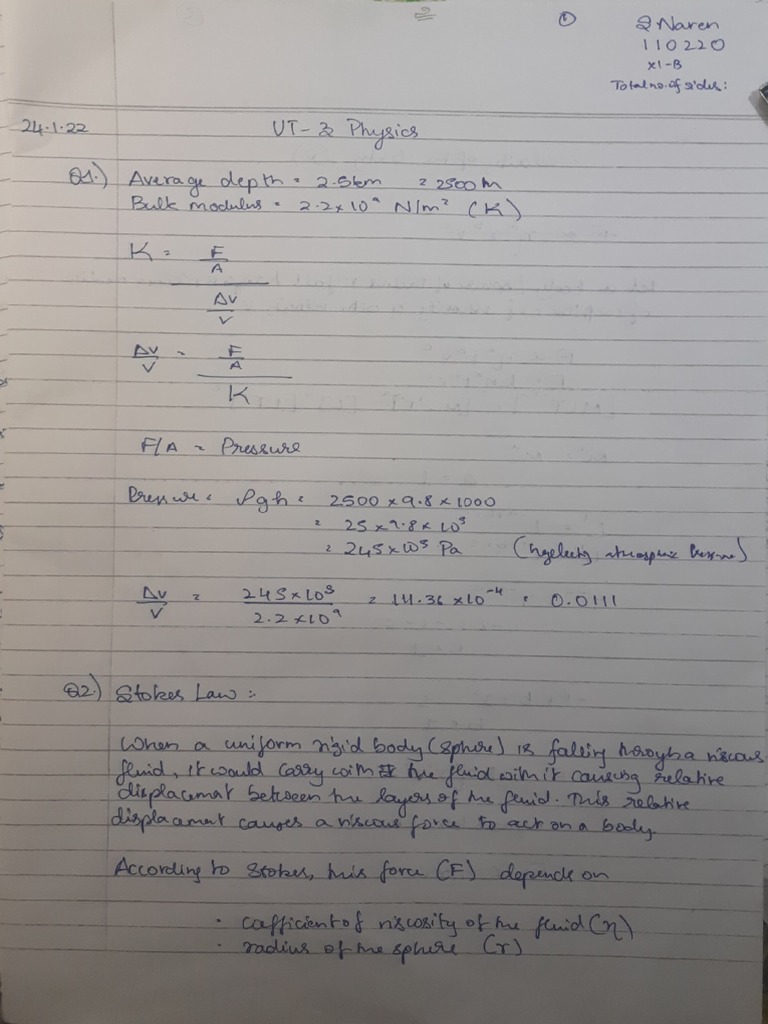 2
①
S Naren
110220
XI-B
Total no. of sides:
24.1.22
UT-3 Physics
Q1.) Average depth = 2.5km = 2500m
Bulk modulus = 2.2 x 10⁹ N/m² (K)
K = F/A / ΔV/V
ΔV/V = F/A / K
F/A = Pressure
Pressure = ρgh = 2500 x 9.8 x 1000
= 25 x 9.8 x 10⁵
= 245 x 10⁵ Pa (Neglecting atmospheric Pressure)
ΔV/V = 245 x 10⁵ / 2.2 x 10⁹ = 111.36 x 10⁻⁴ = 0.0111
Q2.) Stokes Law :
When a uniform rigid body (sphere) is falling through a viscous
fluid, it would carry with the fluid with it causing relative
displacement between the layers of the fluid. This relative
displacement causes a viscous force to act on a body.
According to Stokes, this force (F) depends on
· cofficient of viscosity of the fluid (η)
· radius of the sphere (r)